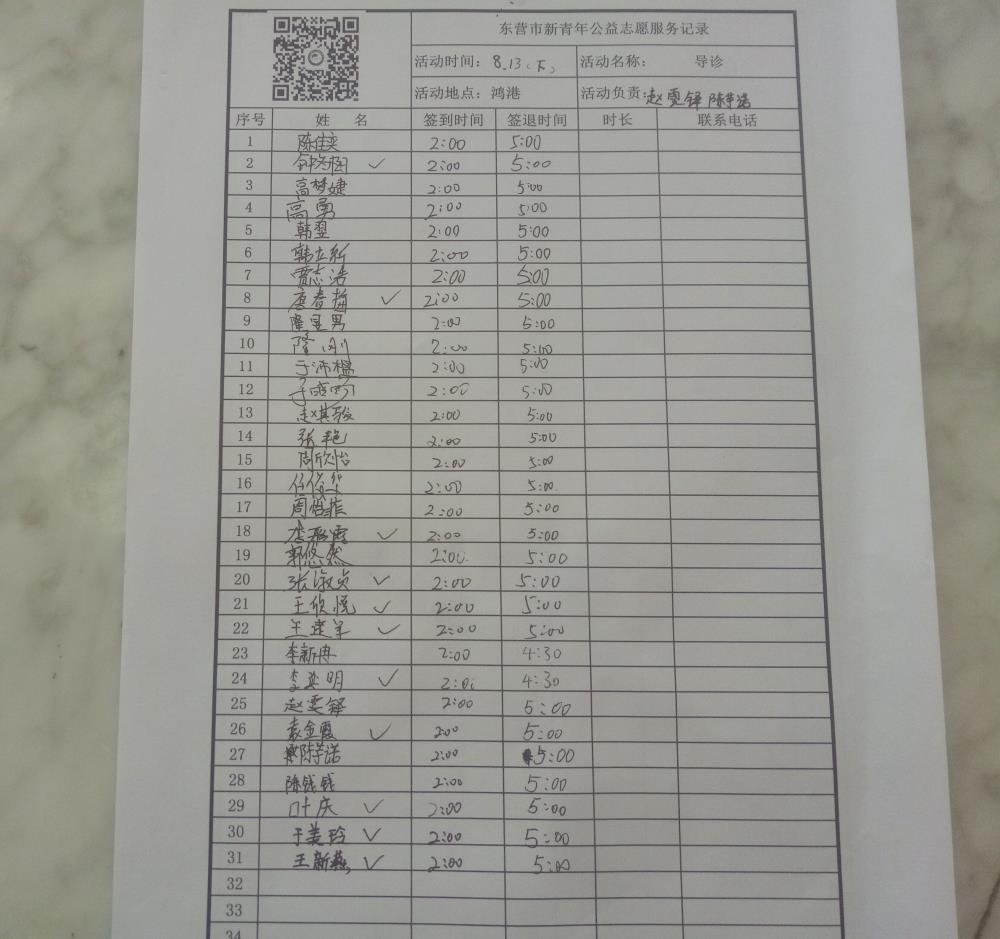 东营市新青年公益志愿服务记录
活动时间：8.13（下） 活动名称： 导诊
活动地点：鸿港 活动负责：赵雯铎 陈芋诺
序号 姓 名 签到时间 签退时间 时长 联系电话
1 陈佳奕 2:00 5:00
2 ✓ 2:00 5:00
3 高梦婕 2:00 5:00
4 高勇 2:00 5:00
5 韩翌 2:00 5:00
6 韩立新 2:00 5:00
7 贾志浩 2:00 5:00
8 唐春梅 ✓ 2:00 5:00
9 隆昱男 2:00 5:00
10 隆刚 2:00 5:00
11 于沛楹 2:00 5:00
12 2:00 5:00
13 赵其骏 2:00 5:00
14 张艳 2:00 5:00
15 周欣怡 2:00 5:00
16 2:00 5:00
17 周恺菲 2:00 5:00
18 ✓ 2:00 5:00
19 郭悠然 2:00 5:00
20 张淑贞 ✓ 2:00 5:00
21 王欣悦 ✓ 2:00 5:00
22 王建军 ✓ 2:00 5:00
23 李新冉 2:00 4:30
24 李奕明 ✓ 2:00 4:30
25 赵雯铎 2:00 5:00
26 袁金霞 ✓ 2:00 5:00
27 陈芋诺 2:00 5:00
28 陈钱钱 2:00 5:00
29 叶庆 ✓ 2:00 5:00
30 于美玲 ✓ 2:00 5:00
31 王新燕 ✓ 2:00 5:00
32
33
34